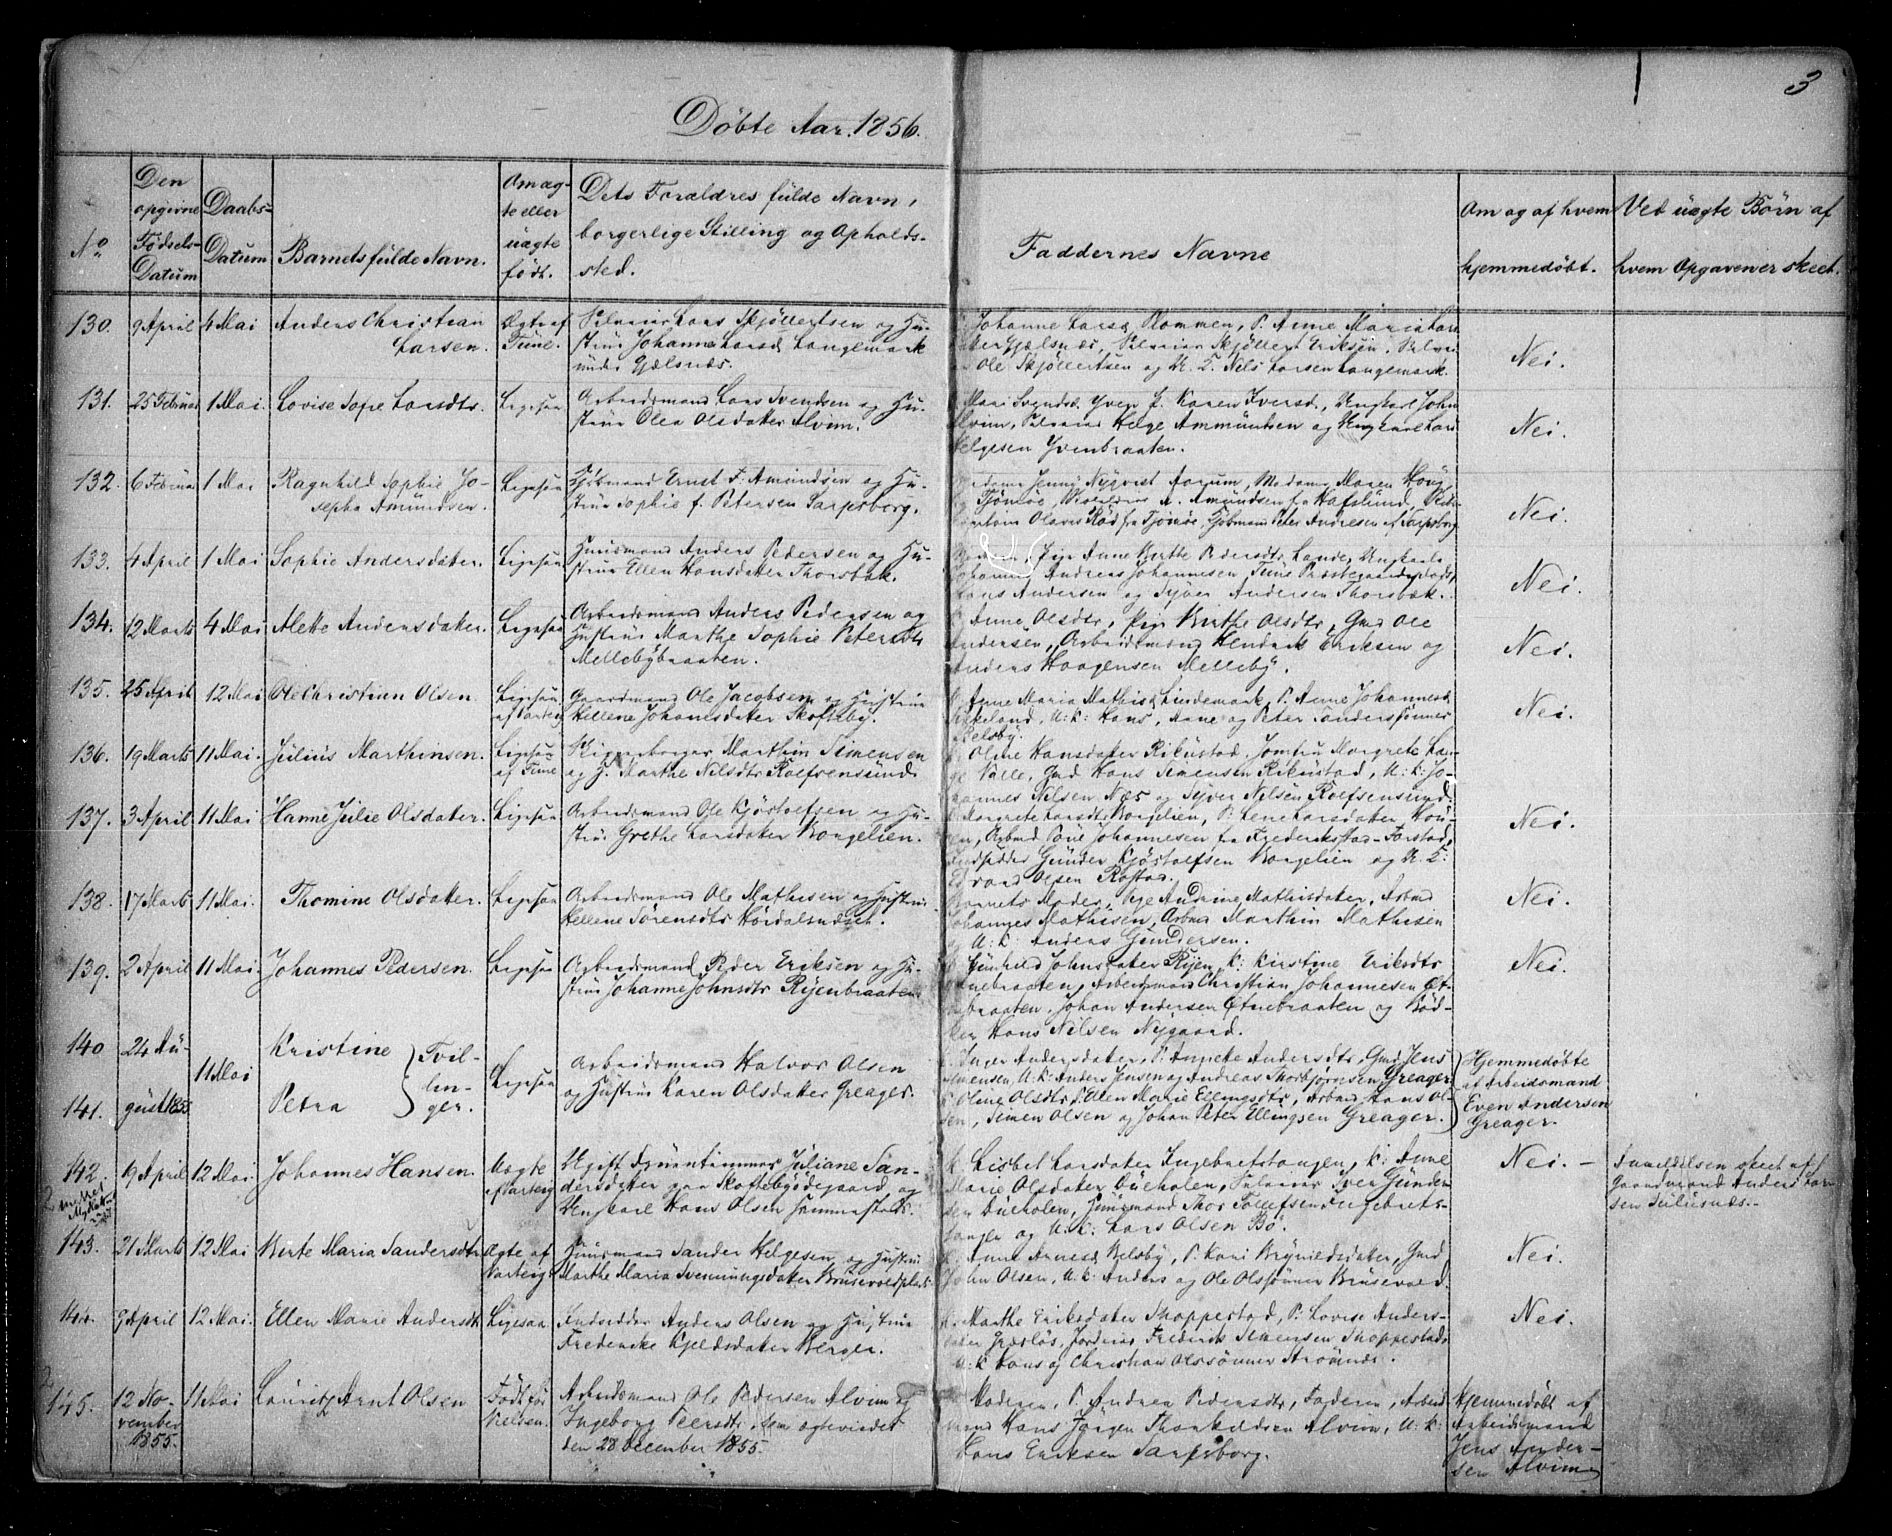 3
Døbte Aar. 1856.
No
Den opgivne Fødsels-Datum
Daabs-Datum
Barnets fulde Navn.
Om æg-
te eller
uægte
født.
Dets Forældres fulde Navn,
borgerlige Stilling og Opholds-
sted.
Faddernes Navne
Om og af hvem
hjemmedøbt.
Ved uægte Børn af
hvem Opgaven er skeet.
130. 9 April 4 Mai Anders Christian
Larsen.
Ægte af
Tune.
Lars Skjöllertsen og Hu-
strue Johanne Larsd. Langemark
under Gjælsnæs.
Johanne Larsd. Blommen, P. Anne Maria Lars
Skjöllert Eriksen,
Ole Skjöllertsen og U. K. Nils Larsen Langemark.
Nei.
131. 25 Februar 1 Mai. Lovise Sofie Larsdtr.
Ligesaa
Arbeidsmand Lars Svendsen og Hu-
strue Olea Olsdater Alvim.
Mari Svendsd. Karen Iversd., Ungkarl John
Alvim, Helge Ammundsen og Ungkarl Lars
Helgesen Yvenbraaten.
Nei.
132. 6 Februar 1 Mai Ragnhild Sophie Jo-
sepha Amundsen.
Ligesaa
Kjøbmand Ernst F. Amundsen og Hu-
strue Sophie f. Petersen Sarpsborg.
Jenny Nyqvist Aarum, Madame Maren Høig
Tjömöe, A. Amundsen fra Hafslund,
Olaves Röd fra Tjömöe, Kjøbmand Peter Andresen af Sarpsborg
Nei.
133. 4 April 1 Mai Sophie Andersdater.
Ligesaa
Huusmand Anders Pedersen og Hu-
strue Ellen Hansdater Thorsbæk.
Pige Anne Berthe Pedersdtr Lande, Ungkarle
Johannes Andreas Johannesen Tune Præstegaardsplads,
Hans Andersen og Syver Andersen Thorsbæk.
Nei.
134. 12 Marts 4 Mai Alette Andersdater.
Ligesaa
Arbeidsmand Anders Pedersen og
Hustrue Marthe Sophie Petersdtr
Mellebybraaten.
Anne Olsdtr, Pige Birthe Olsdtr, Gmd Ole
Andersen, Arbeidsmand Hendrik Eriksen og
Anders Haagensen Melleby.
Nei.
135. 25 April 12 Mai Ole Christian Olsen.
Ligesaa
af Varteig
Gaardmand Ole Jacobsen og Hustrue
Hellene Johansdater Skofteby.
Anne Maria Mathisd. Lindemark, P. Anne Johannesd.
U: K: Hans, Arne og Peter Sanderssønner
Belsby.
Nei.
136. 19 Marts 11 Mai. Julius Marthinsen.
Ligesaa
af Tune
Marthin Simensen
og H. Marthe Nilsdtr Rolfsensund.
Oline Hansdater Rikustad, Jomfru Margrete La-
Valle, Gmd Hans Simensen Rikustad, U: K: Jo-
hannes Nilsen Næs og Syver Nilsen Rolfsensund.
137. 3 April 11 Mai Hanne Julie Olsdater.
Ligesaa
Arbeidsmand Ole Kjöstolfsen og Hu-
strue Grethe Larsdater Borgelien.
Margrete Larsdtr Borgelien, P: Lene Larsdater, Hau-
gen, Arbmd Povl Johannesen fra Frederiksstad-Forstad,
Indsidder Gunder Kjöstolfsen Borgelien og U. K:
Edvard Olsen Rostad.
Nei.
138. 17 Marts 11 Mai. Thomine Olsdater.
Ligesaa
Arbeidsmand Ole Mathisen og Hustrue
Hellene Sörensdtr Hördalsædset.
Barnets Moder, Pige Andrine Mathisdater, Arbmd
Johannes Mathisen, Arbmd Marthin Mathisen
og U: K: Anders Gundersen.
Nei.
139. 2 April 11 Mai. Johannes Pedersen.
Ligesaa
Arbeidsmand Peder Eriksen og Hu-
strue Johanne Johnsdtr Ryenbraaten
Gunhild Johnsdater Ryen, K: Kirstine Eriksdtr
Arbeidsmand Christian Johannesen Øt-
nebraaten, Johan Andersen Øtnebraaten og Bød-
ker Hans Nilsen Nygaard.
Nei.
140
141.
24 Au-
gust 1855.
11 Mai
Kristine
Petra
Tvil-
lin-
ger.
Ligesaa
Arbeidsmand Halvor Olsen
og Hustrue Karen Olsdater Greager.
Inger Andersdater, P: Annete Andersdtr, Gmd Jens
Simensen, U: K: Anders Jensen og Andreas Thorbjørnsen Greager
Oline Olsdtr, P. Ellen Marie Ellingsdtr, Arbmd Hans Ol-
sen, Simen Olsen og Johan Peter Ellingsen Greager.
Hjemmedøbte
af Arbeidsmand
Even Andersen
Greager.
142. 9 April 12 Mai Johannes Hansen.
Uægte
af Varteig
Ugift Fruentimmer Juliane San-
dersdater paa Skoftebyødegaard og
Ungkarl Hans Olsen
K. Lisbet Larsdater Ingebretstangen, K: Anne
Marie Olsdater Bueholen, Iver Gunder-
sen Bueholen, Huusmand Thor Tollefsen Ingebrets-
tangen og U: K: Lars Olsen Bø.
Nei. -
Anmeldelsen skeet af
Gaardmand Anders Lar-
sen Juliusnæs.
143. 21 Marts 12 Mai Birte Maria Sandersdtr
Ægte af
Varteig
Huusmand Sander Helgesen og Hustrue
Marthe Maria Svenningsdater Brusevoldplads
Anne Arnesd. Belsby, P. Kari Brynildsdater, Gmd
John Olsen, U. K: Anders og Ole Olssønner Brusevold.
Nei.
144. 9 April 12 Mai. Ellen Marie Andersdtr
Ligesaa
Indsidder Anders Olsen og Hustrue
Frederikke Kjeldsdater Berger.
Marthe Eriksdater Thoppestad, P: Lovise Anders-
dater Græsløs, Frederik Simensen Thoppestad,
U: K Hans og Christian Olssønner
Nei.
145. 12 No-
vember
1855.
11 Mai Lauritz Arnt Olsen
Født før
Vielsen.
Arbeidsmand Ole Pedersen Alvim og
Ingeborg Peersdtr, som
den 28 December 1855.
Moderen, P. Andrea Pedersdtr, Faderen, Arbeids-
mand Hans Jørgen Thorkildsen Alvim, U: K:
Hans Eriksen Sarpsborg.
Hjemmedøbt af
Arbeidsmand
Jens Ander-
sen Alvim